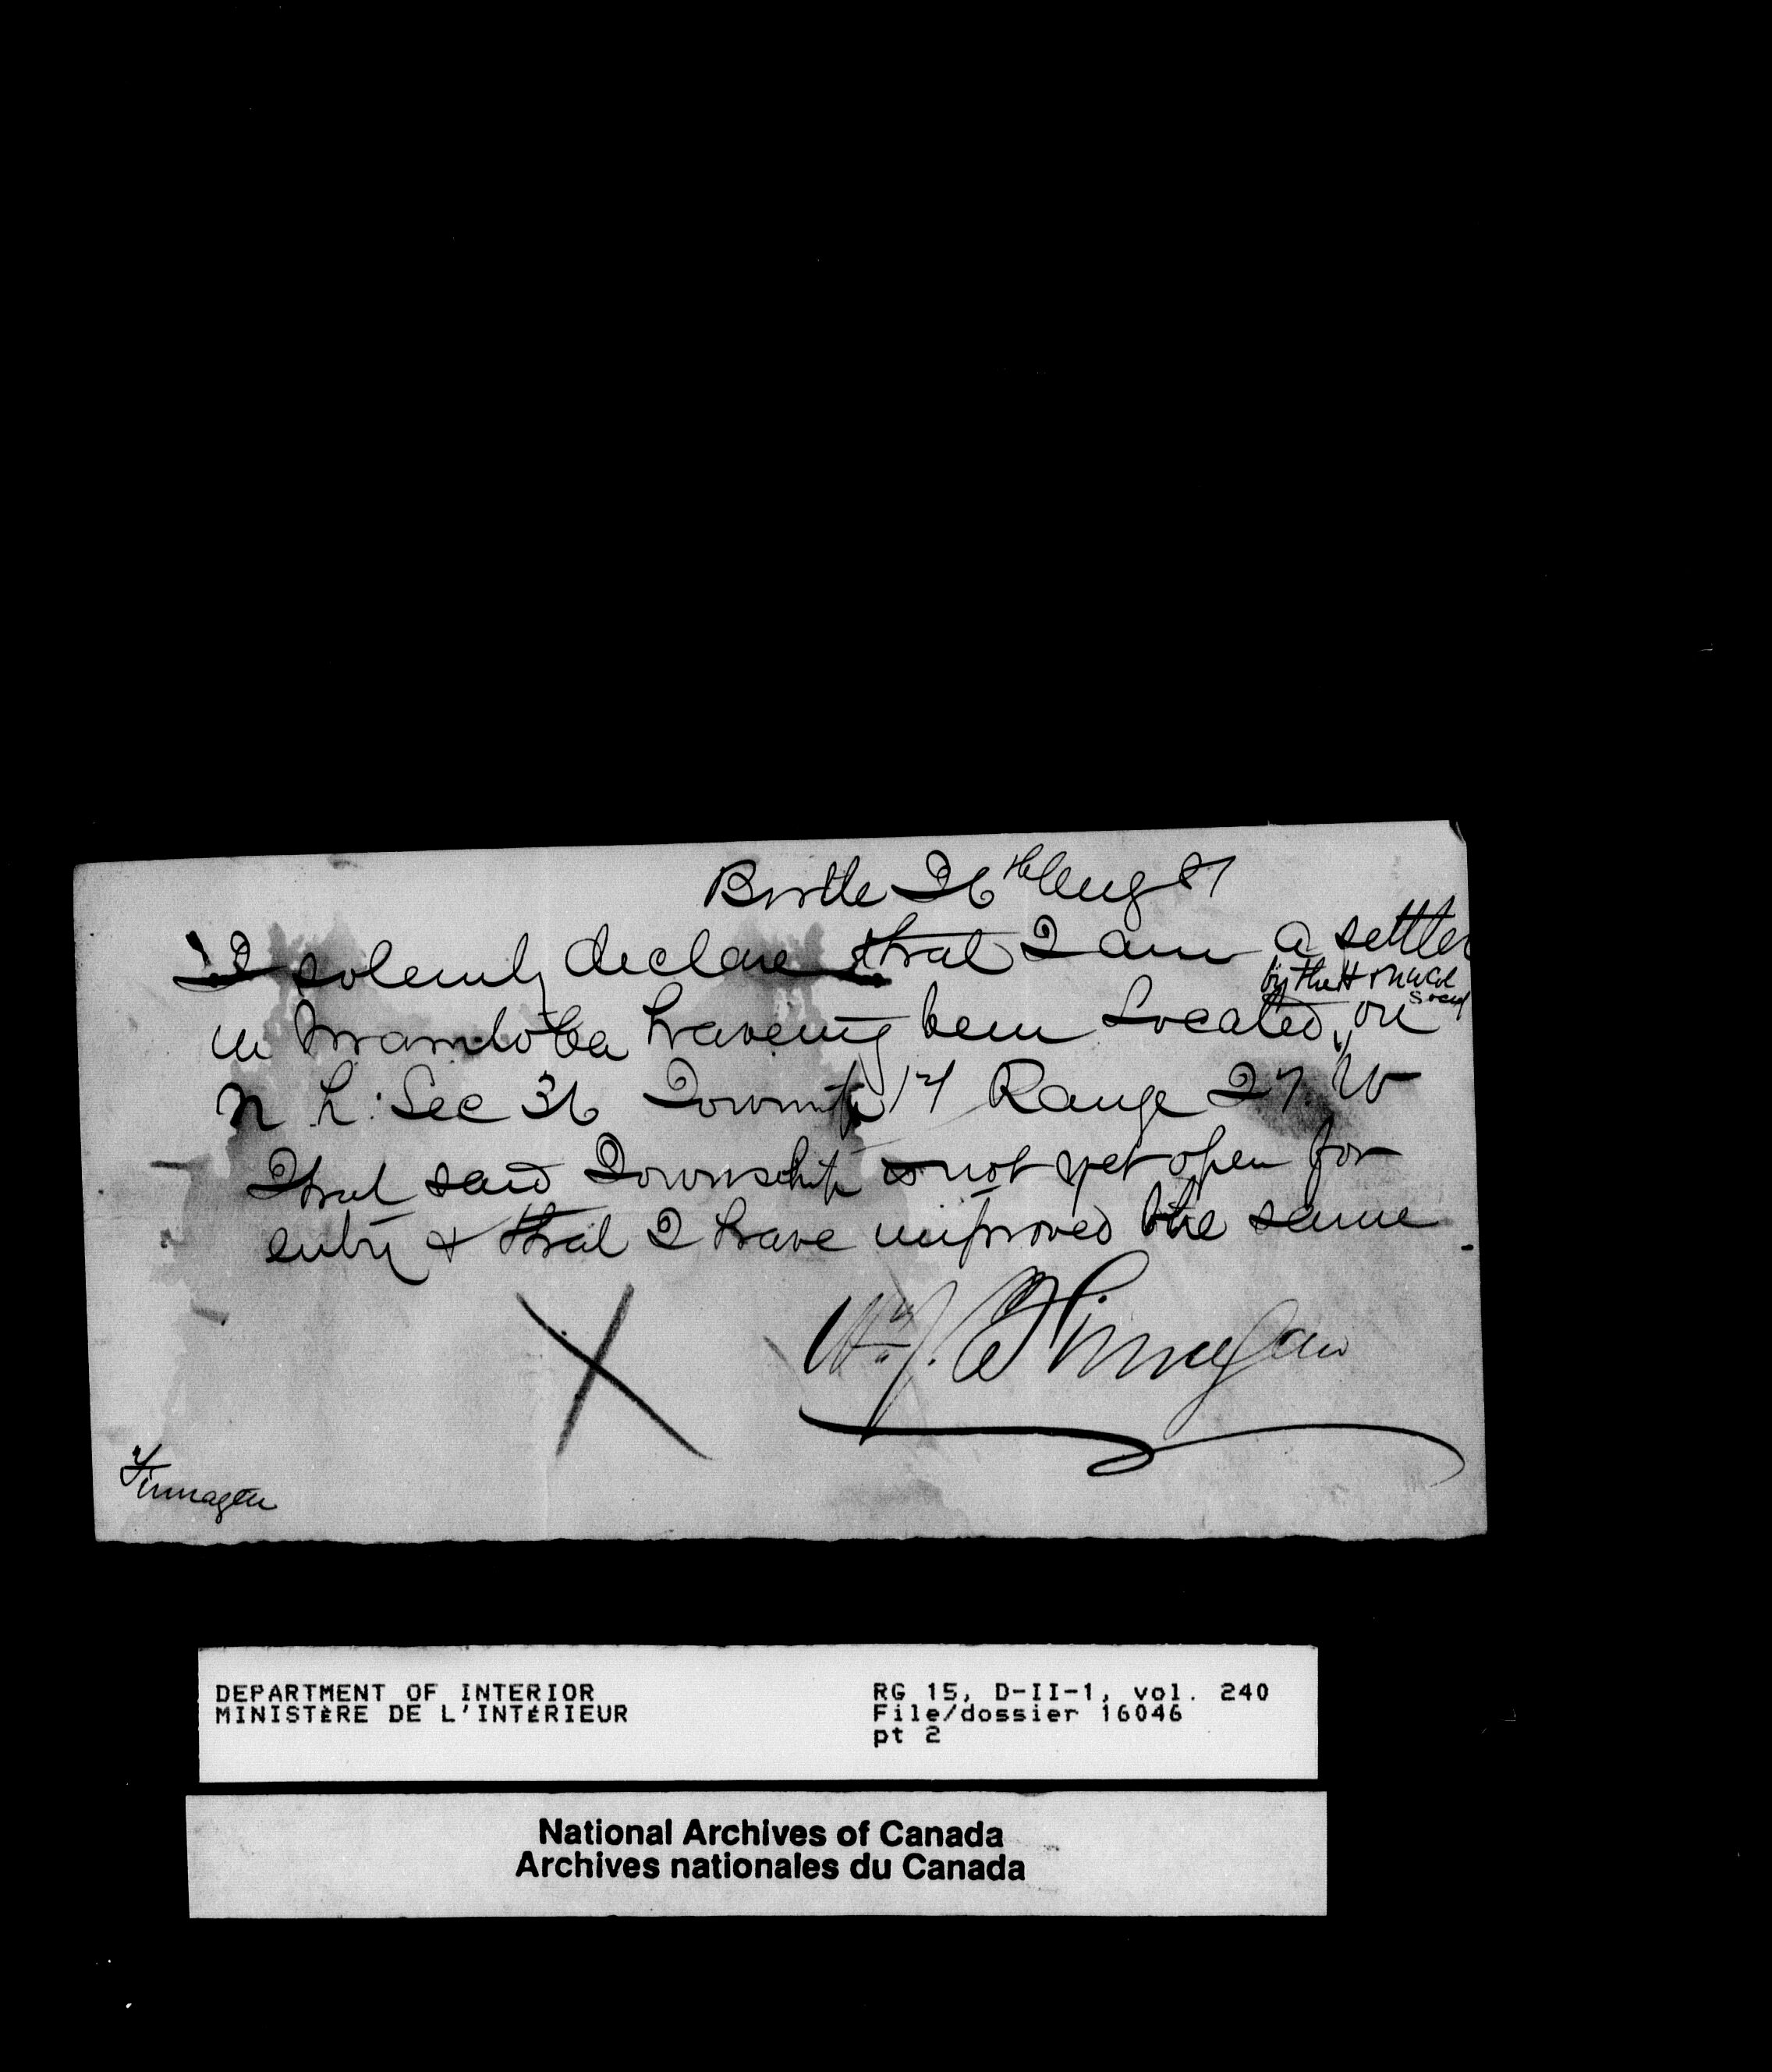 Birtle 26th Aug 81
I solemnly declare that I am a settler
by the
in Manitoba having been located, on
Sec 36 Township 17 Range 27. W
That said Township is not yet open for
entry & that I have improved the same.
Wm J. Finnegan
Finnagen
DEPARTMENT OF INTERIOR
MINISTÈRE DE L'INTÉRIEUR
RG 15, D-II-1, vol. 240
File/dossier 16046
pt 2
National Archives of Canada
Archives nationales du Canada